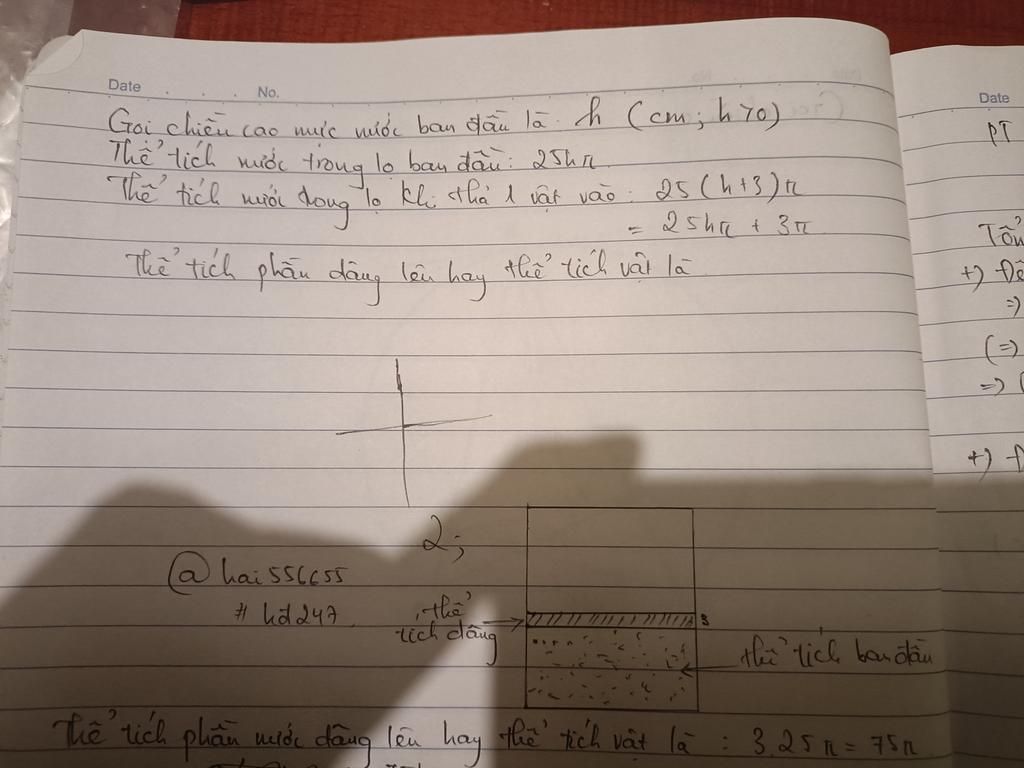 Date
No.
Gọi chiều cao mực nước ban đầu là h (cm; h>0)
Thể tích nước trong lọ ban đầu: 25hπ
Thể tích nước trong lọ khi thả 1 vật vào: 25(h+3)π
= 25hπ + 3π
Thể tích phần dâng lên hay thể tích vật là
2;
@hai556655
# hd247
thể
tích dâng
3
thể tích ban đầu
Thể tích phần nước dâng lên hay thể tích vật là : 3.25π = 75π
Date
PT
+)
=>
(=>
=>
+)